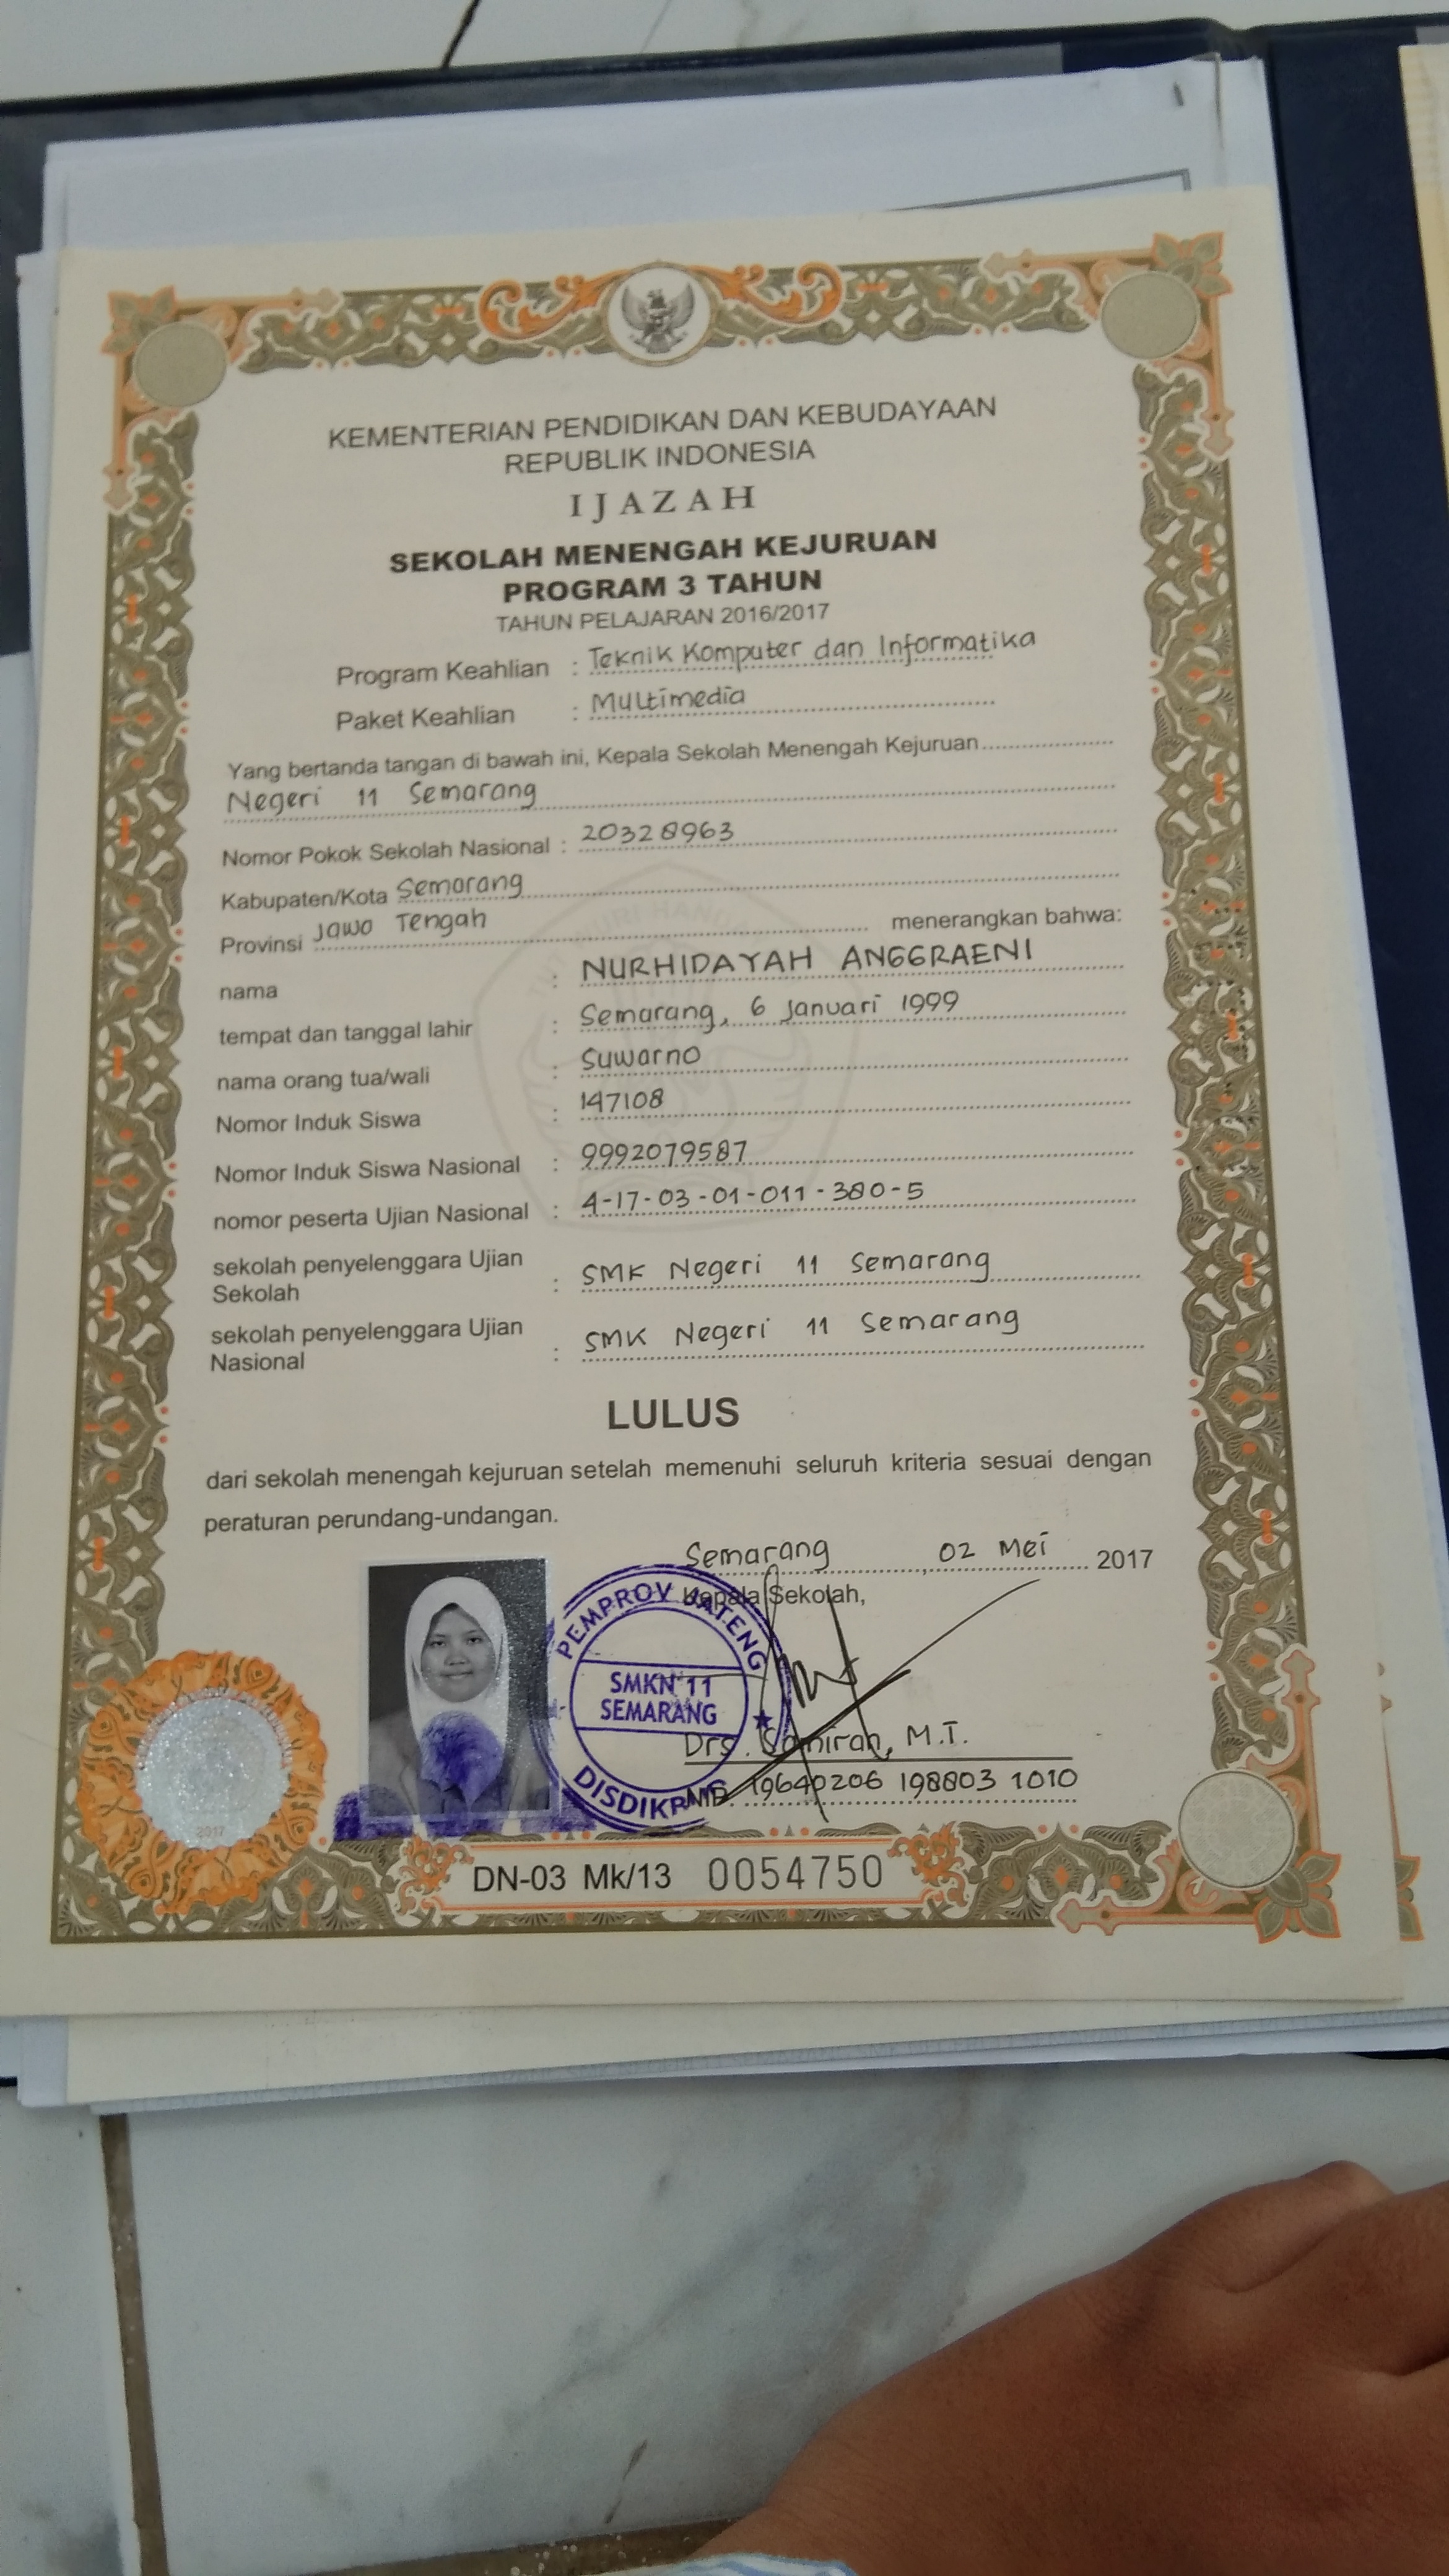 KEMENTERIAN PENDIDIKAN DAN KEBUDAYAAN
REPUBLIK INDONESIA
IJAZAH
SEKOLAH MENENGAH KEJURUAN
PROGRAM 3 TAHUN
TAHUN PELAJARAN 2016/2017
Program Keahlian : Teknik Komputer dan Informatika
Paket Keahlian : Multimedia
Yang bertanda tangan di bawah ini, Kepala Sekolah Menengah Kejuruan
Negeri 11 Semarang
Nomor Pokok Sekolah Nasional : 20328963
Kabupaten/Kota Semarang
Provinsi Jawa Tengah menerangkan bahwa:
nama : NURHIDAYAH ANGGRAENI
tempat dan tanggal lahir : Semarang, 6 Januari 1999
nama orang tua/wali : Suwarno
Nomor Induk Siswa : 147108
Nomor Induk Siswa Nasional : 9992079587
nomor peserta Ujian Nasional : 4-17-03-01-011-380-5
sekolah penyelenggara Ujian
Sekolah : SMK Negeri 11 Semarang
sekolah penyelenggara Ujian
Nasional : SMK Negeri 11 Semarang
LULUS
dari sekolah menengah kejuruan setelah memenuhi seluruh kriteria sesuai dengan
peraturan perundang-undangan.
Semarang, 02 Mei 2017
Kepala Sekolah,
PEMPROV JATENG
SMKN 11
SEMARANG
Drs. M.T.
19640206 198803 1010
2017
DN-03 Mk/13 0054750